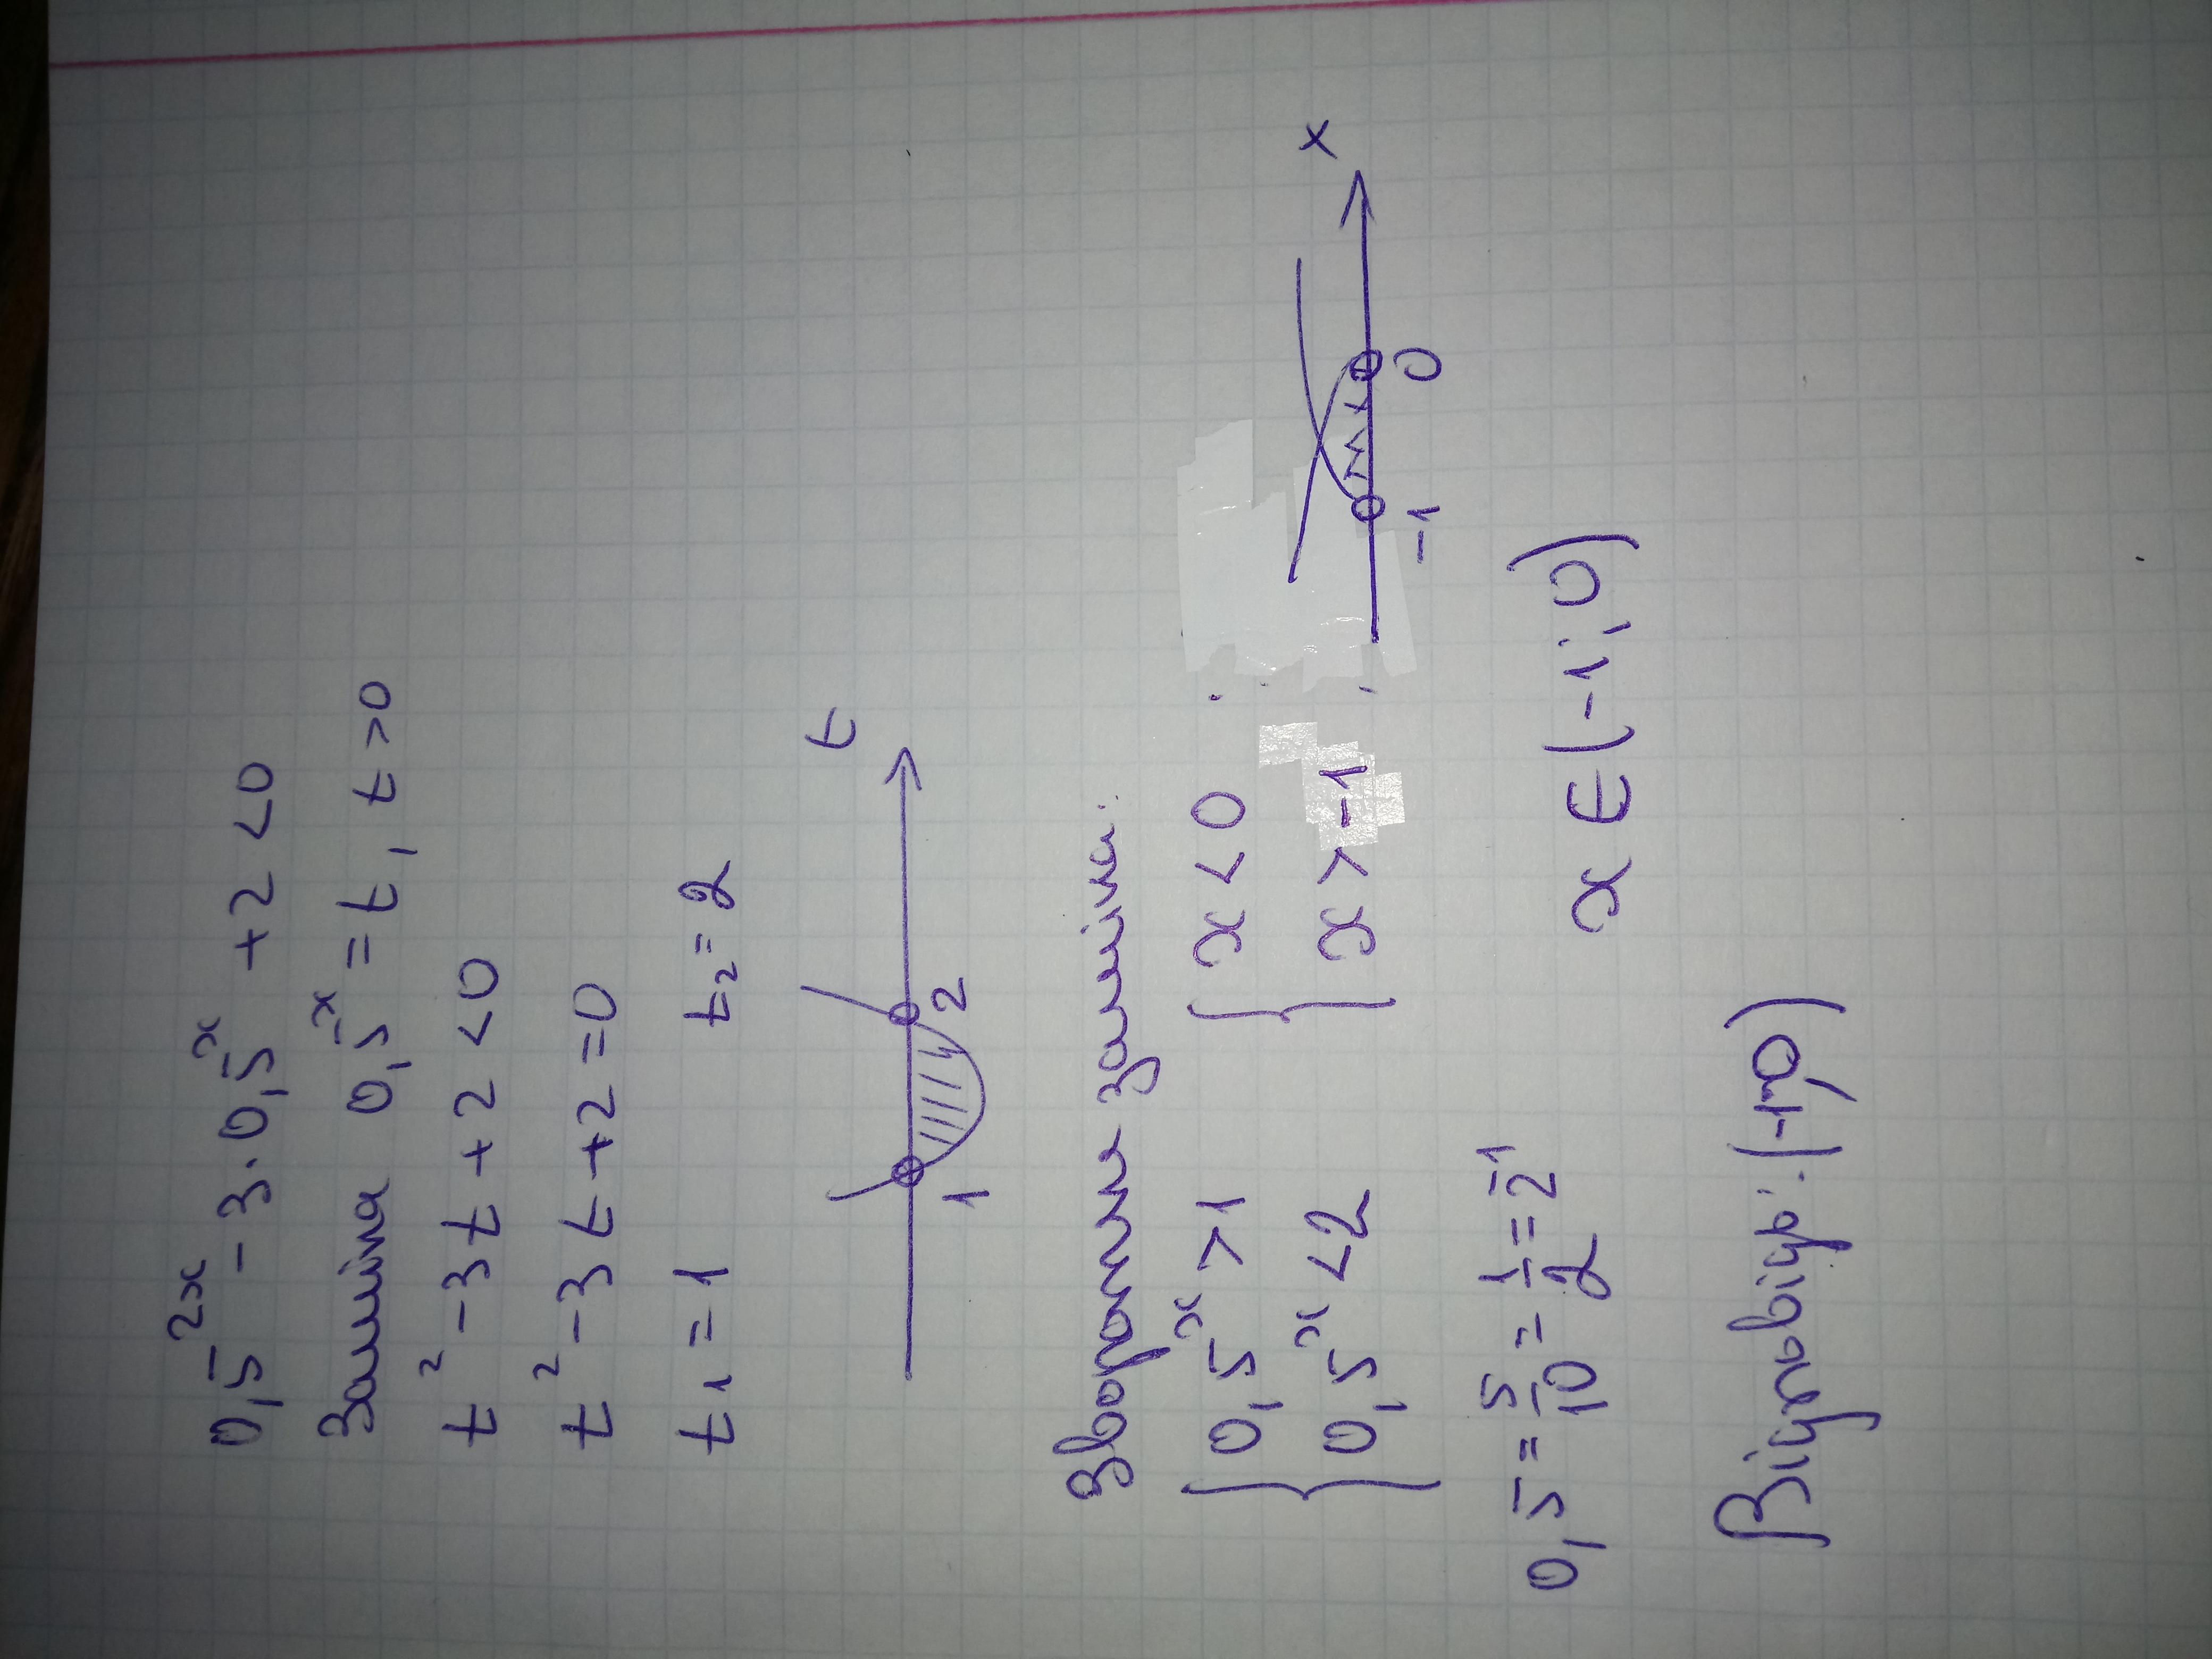 0,5^2x - 3·0,5^x + 2 <0
Заміна 0,5^x = t, t >0
t² - 3t + 2 <0
t² - 3t + 2 =0
t₁ = 1 t₂ = 2
1 2 t
Зворотня заміна:
{ 0,5^x >1 { x < 0
{ 0,5^x <2 { x > -1
-1 0 x
0,5 = 5/10 = 1/2 = 2^-1 x ∈ (-1; 0)
Відповідь: (-1;0)